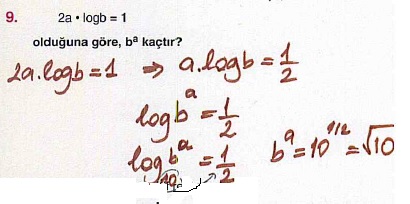 9. 2a • logb = 1
olduğuna göre, bᵃ kaçtır?
2a.logb=1 ⇒ a.logb=1/2
logbᵃ=1/2
log₁₀bᵃ=1/2 bᵃ=10^1/2=√10